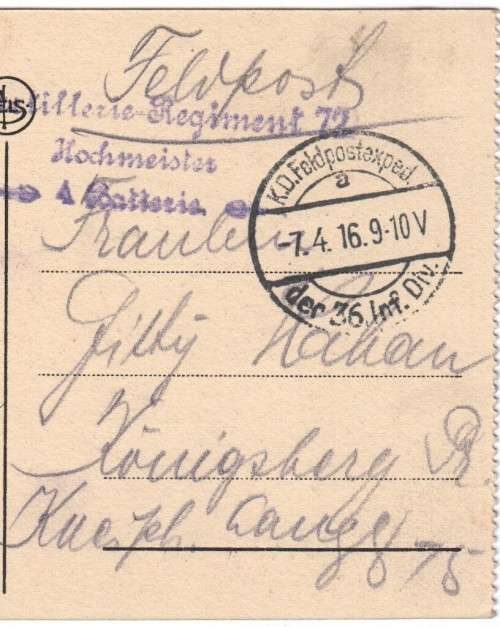 Feldpost
tillerie-Regiment 72
Hochmeister
4 Batterie
K.D.Feldpostexped.
a
-7.4.16.9-10V
der 36.Inf. Div.
Fräulein
Königsberg Pr.
Kneiph. Langg 75